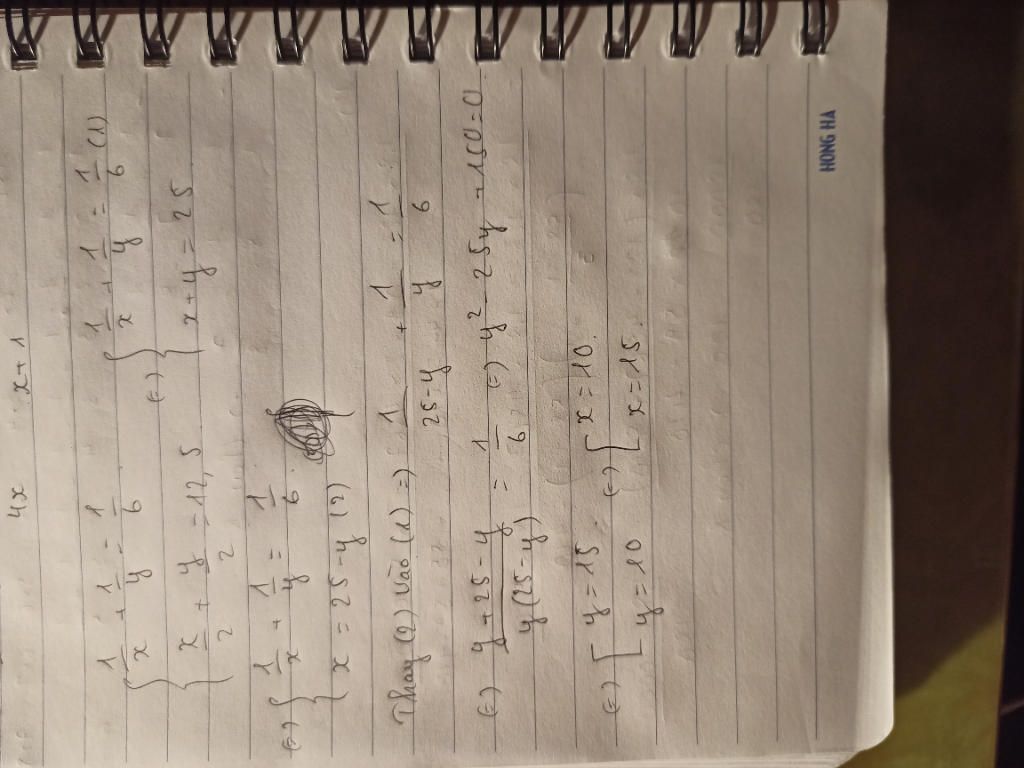 4x x+1
{ 1/x + 1/y = 1/6
{ x/2 + y/2 = 12,5
(=) { 1/x + 1/y = 1/6 (1)
{ x+y = 25
(=) { 1/x + 1/y = 1/6
{ x = 25-y (2)
Thay (2) vào (1) =) 1/(25-y) + 1/y = 1/6
(=) (y+25-y)/(y(25-y)) = 1/6 (=) y² - 25y + 150 = 0
(=) [ y=15 (=) [ x=10.
[ y=10 [ x=15.
HONG HA